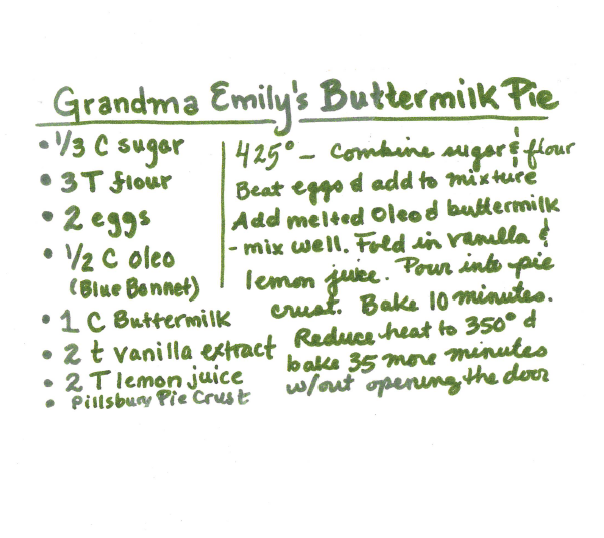 Grandma Emily's Buttermilk Pie
• 1/3 C sugar
• 3 T flour
• 2 eggs
• 1/2 C oleo
(Blue Bonnet)
• 1 C Buttermilk
• 2 t vanilla extract
• 2 T lemon juice
• Pillsbury Pie Crust
425° - Combine sugar & flour
Beat eggs & add to mixture
Add melted Oleo & buttermilk
- mix well. Fold in vanilla &
lemon juice. Pour into pie
crust. Bake 10 minutes.
Reduce heat to 350° &
bake 35 more minutes
w/out opening the door